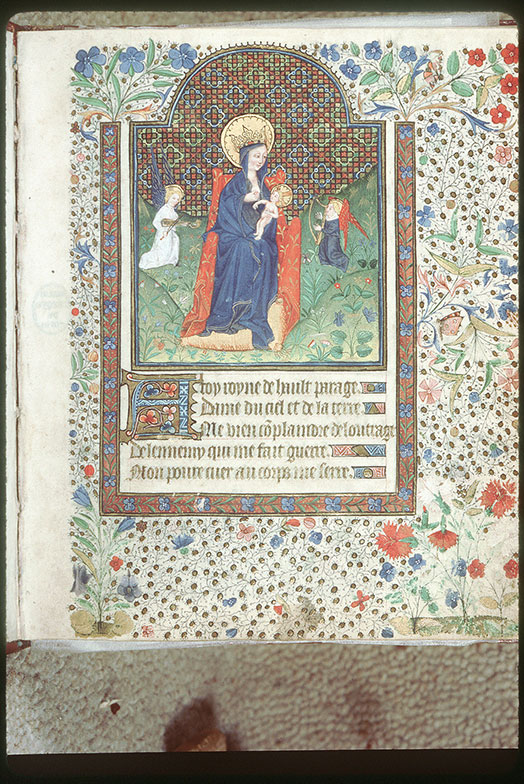 A toy royne de hault parage
Dame du ciel et de la terre
Me vien cõplaindre de loutrage
De lennemy qui me fait guerre
Mon poure cuer au corps me serre